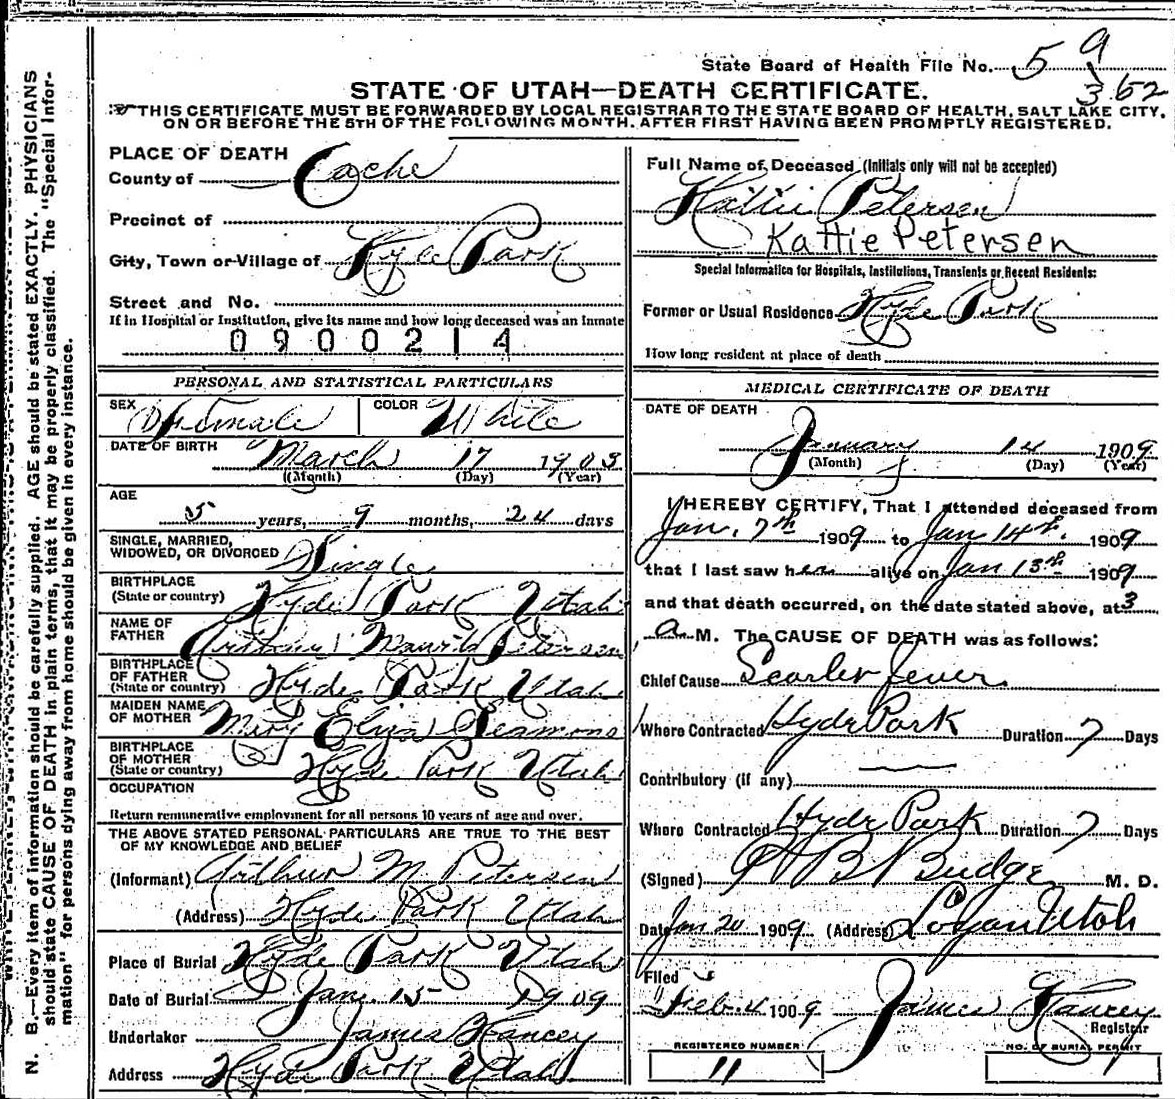 State Board of Health File No. 59
362
STATE OF UTAH—DEATH CERTIFICATE.
THIS CERTIFICATE MUST BE FORWARDED BY LOCAL REGISTRAR TO THE STATE BOARD OF HEALTH, SALT LAKE CITY,
ON OR BEFORE THE 5TH OF THE FOLLOWING MONTH, AFTER FIRST HAVING BEEN PROMPTLY REGISTERED.
PLACE OF DEATH
County of Cache
Precinct of
City, Town or Village of Hyde Park
Street and No.
If in Hospital or Institution, give its name and how long deceased was an Inmate
0900214
PERSONAL AND STATISTICAL PARTICULARS
SEX Female COLOR White
DATE OF BIRTH March 17 1903
(Month) (Day) (Year)
AGE
5 years, 9 months, 24 days
SINGLE, MARRIED,
WIDOWED, OR DIVORCED Single
BIRTHPLACE
(State or country) Hyde Park Utah
NAME OF
FATHER Arthur Mauritz Petersen
BIRTHPLACE
OF FATHER
(State or country) Hyde Park Utah
MAIDEN NAME
OF MOTHER Mary Eliza Seamons
BIRTHPLACE
OF MOTHER
(State or country) Hyde Park Utah
OCCUPATION
Return remunerative employment for all persons 10 years of age and over.
THE ABOVE STATED PERSONAL PARTICULARS ARE TRUE TO THE BEST
OF MY KNOWLEDGE AND BELIEF
(Informant) Arthur M Petersen
(Address) Hyde Park Utah
Place of Burial Hyde Park Utah
Date of Burial Jan. 15 1909
Undertaker James Hancey
Address Hyde Park Utah
Full Name of Deceased (Initials only will not be accepted)
Kattie Petersen
Kattie Petersen
Special Information for Hospitals, Institutions, Transients or Recent Residents:
Former or Usual Residence Hyde Park
How long resident at place of death
MEDICAL CERTIFICATE OF DEATH
DATE OF DEATH
January 14 1909
(Month) (Day) (Year)
I HEREBY CERTIFY, That I attended deceased from
Jan. 7th 1909 to Jan 14th. 1909
that I last saw her alive on Jan 13th 1909
and that death occurred, on the date stated above, at 3
a M. The CAUSE OF DEATH was as follows:
Chief Cause Scarlet fever
Where Contracted Hyde Park Duration 7 Days
Contributory (if any)
Where Contracted Hyde Park Duration 7 Days
(Signed) Budge M. D.
Date Jan 20 1909 (Address) Logan Utah
Filed
Feb. 4 1909 James Hancey
Registrar
REGISTERED NUMBER
11
NO. OF BURIAL PERMIT
1
N. B.—Every item of information should be carefully supplied. AGE should be stated EXACTLY. PHYSICIANS
should state CAUSE OF DEATH in plain terms, that it may be properly classified. The "Special Infor-
mation" for persons dying away from home should be given in every instance.